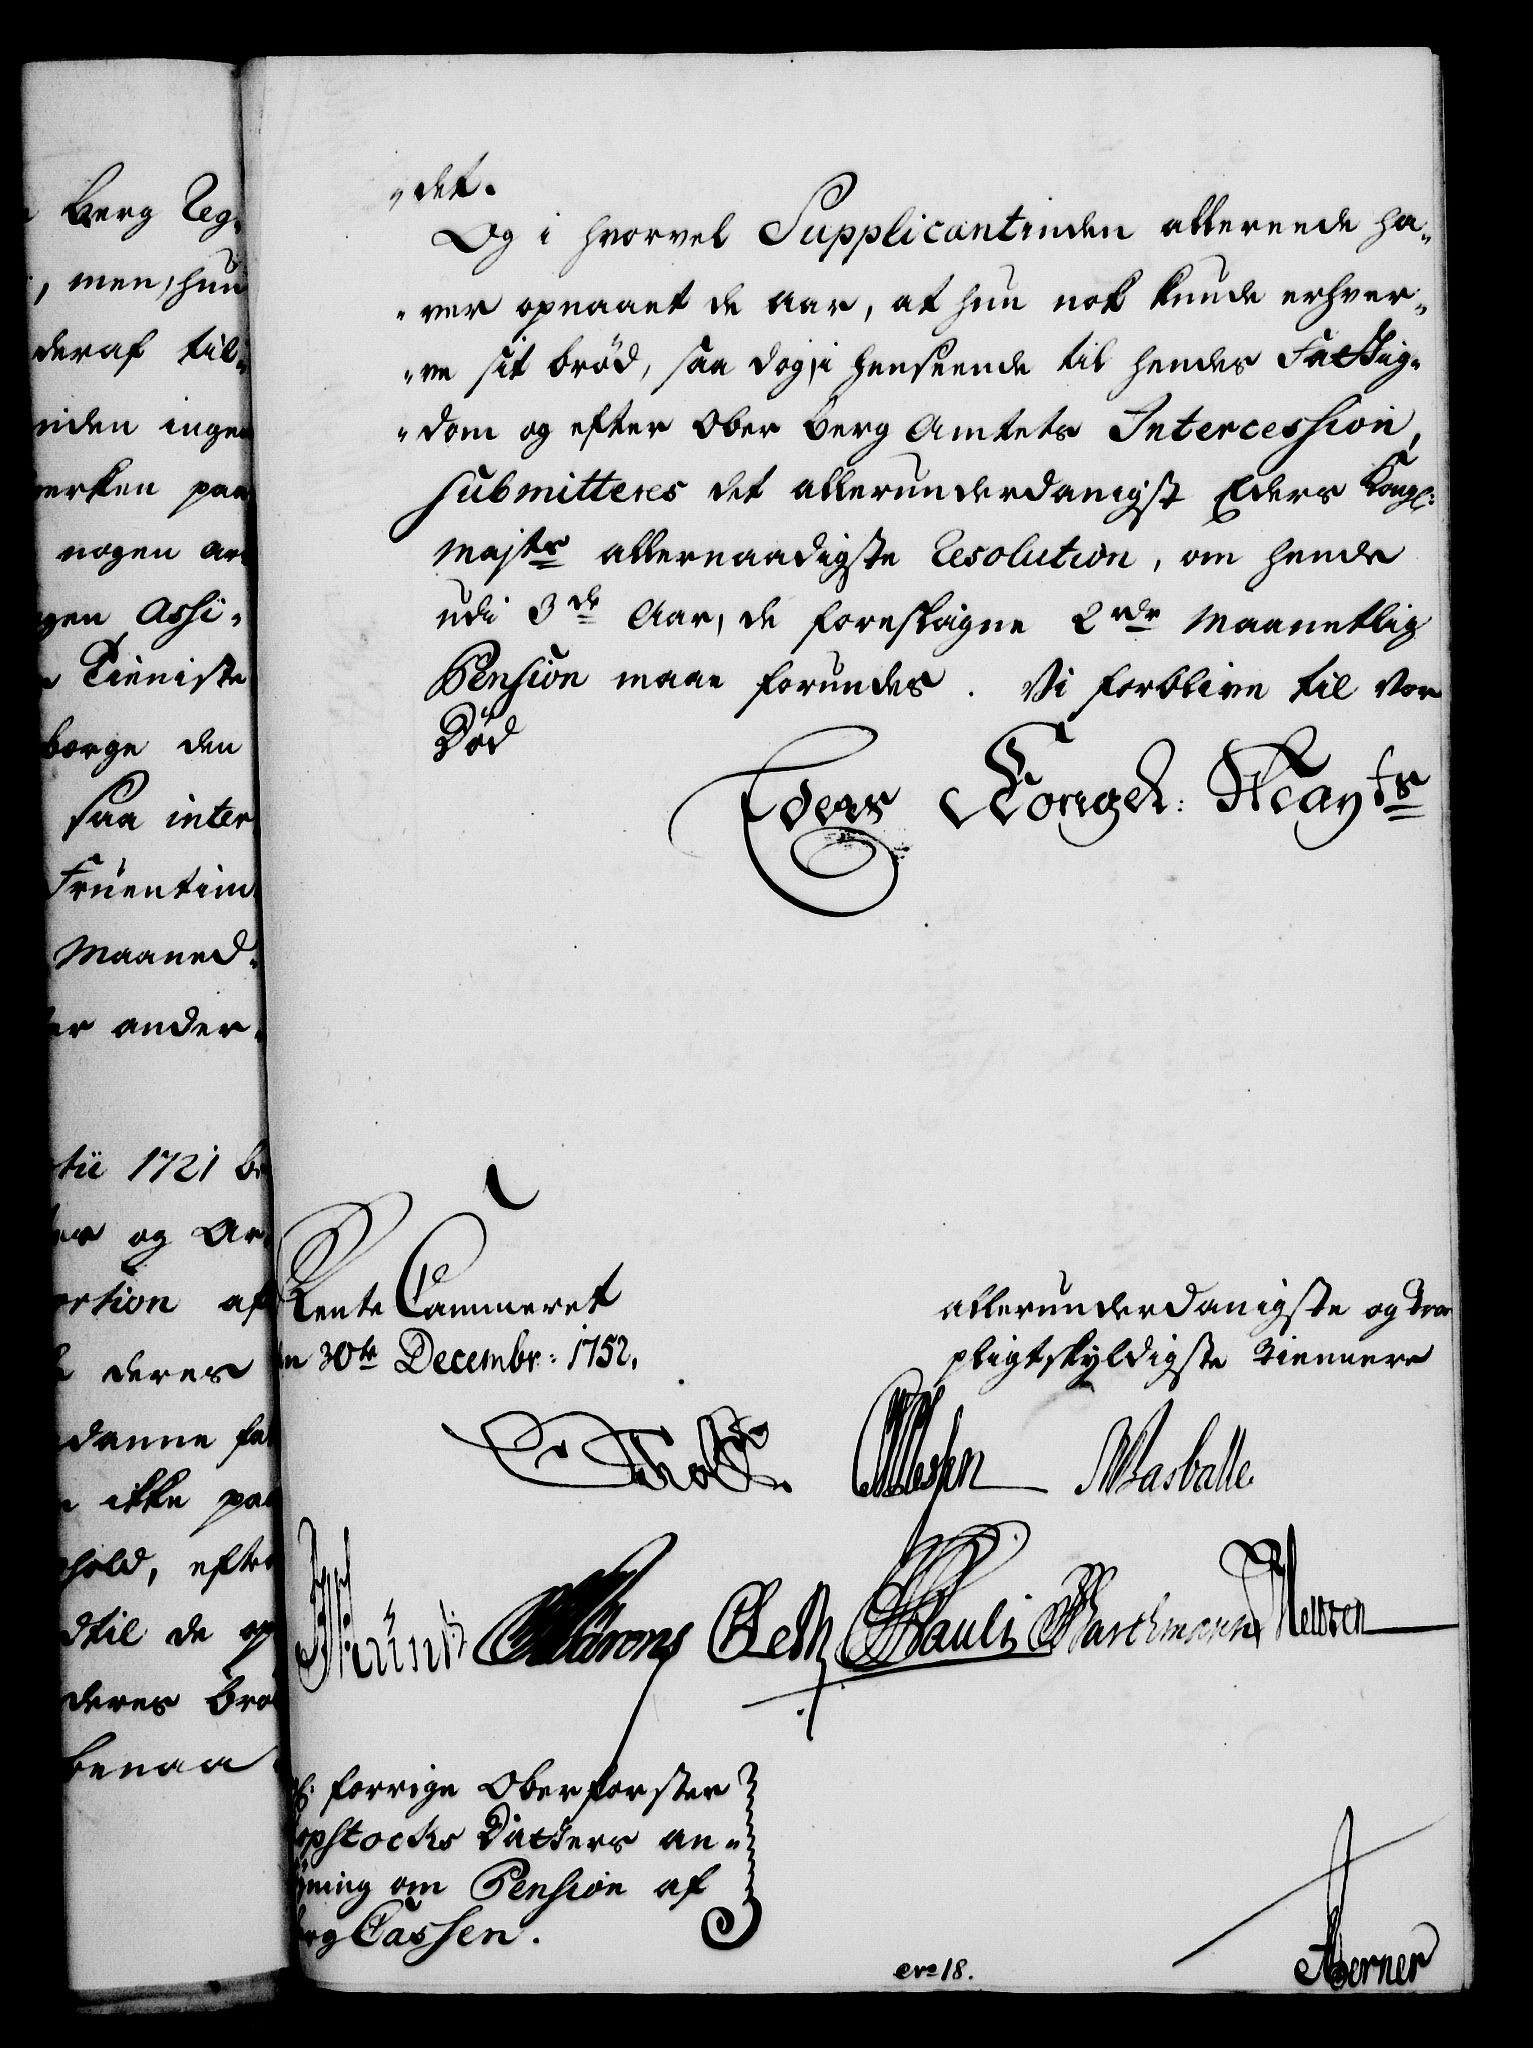 Berg Reg-
, men, hun
deraf til-
inden ingen
verken paa
nogen an
gen Assi-
Tieniste
borge den
saa inter
Fruentim
Maaned-
er ander-
tii 1721 be
og Ar
ortion af
deres
danne
ikke paa
hold, efter
dtil de op
deres brö
benaa
"det.
Og i hvorvel Supplicantinden allereede ha-
"ver opnaaet de Aar, at hun nok kunde erhver-
"ve sit bröd, saa dog, i henseende til hendes Fattig-
"dom og efter Ober Berg Amtets Intercession,
submitteres det allerunderdanigst Eders Kongl:
Majts allernaadigste Resolution, om hende
udi 3de Aar, de foreslagne 2 rdr Maanetlig
Pension maae forundes. Vi forblive til vor
Död
Eders Kongel: Mayts
Rente Cammeret
en 30te Decembr: 1752.
allerunderdanigste og troe
pligtskyldigste Tiennere
Holst. Olessen Masballe
Pauli Barthmann
forrige Oberforster
opstocks Datters an-
ning om Pension af
erg Cassen.
No 18.
Berner